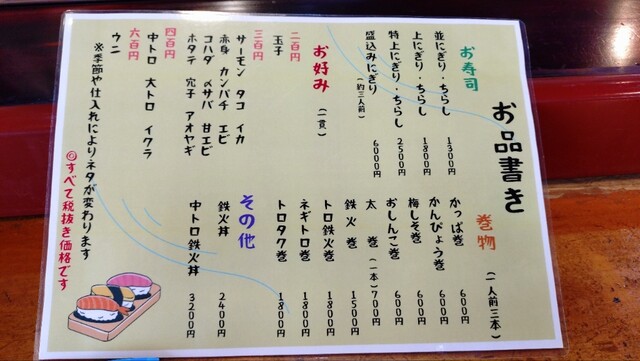 お品書き
お寿司
並にぎり・ちらし 1300円
上にぎり・ちらし 1800円
特上にぎり・ちらし 2500円
盛込みにぎり(約三人前) 6000円
お好み(一貫)
二百円
玉子
三百円
サーモン タコ イカ
赤身 カンパチ エビ
コハダ 〆サバ 甘エビ
ホタテ 穴子 アオヤギ
四百円
中トロ 大トロ イクラ
六百円
ウニ
巻物(一人前三本)
かっぱ巻 600円
かんぴょう巻 600円
梅しそ巻 600円
おしんこ巻 600円
太巻(一本) 700円
鉄火巻 1500円
トロ鉄火巻 1800円
ネギトロ巻 1800円
トロタク巻 1800円
その他
鉄火丼 2400円
中トロ鉄火丼 3200円
※季節や仕入れによりネタが変わります
◎すべて税抜き価格です